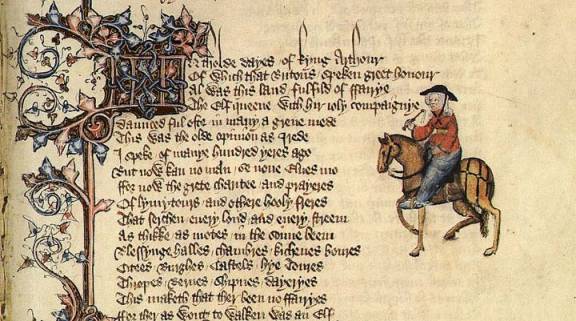 In tholde dayes of kyng Arthour
Of which that Britons speken greet honour
Al was this land fulfild of ffairye
The Elf queene with hir ioly compaignye
Daunced ful ofte in many a grene mede
This was the olde opinion as I rede
I speke of manye hundred yeres ago
But now kan no man se none Elues mo
ffor now the grete charitee and prayeres
Of lymytours and othere hooly freres
That serchen euery lond and euery streem
As thikke as motes in the sonne beem
Blessynge halles chambres kichenes boures
Citees Burghes Castels hye toures
Thropes Bernes Shipnes dayeryes
This maketh that ther been no ffairyes
ffor ther as wont to walken was an Elf